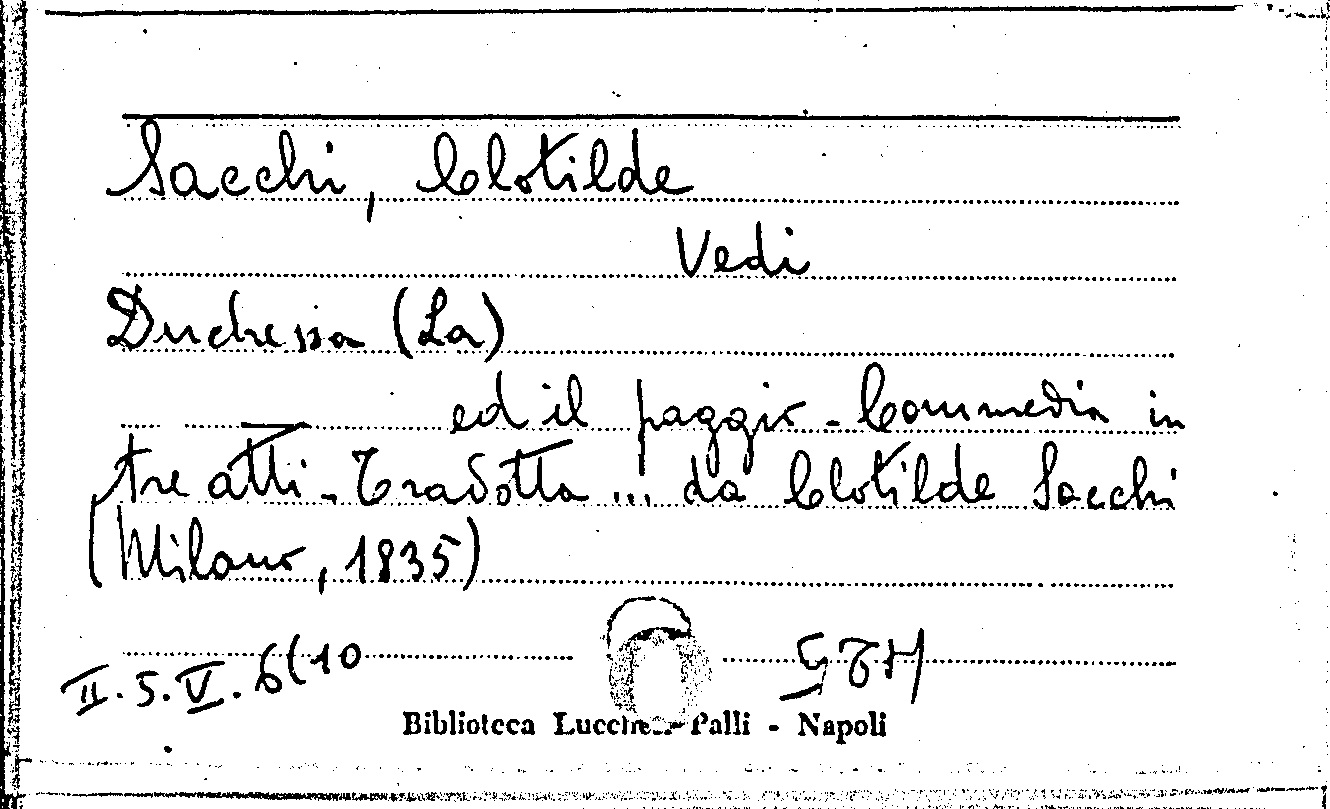 Sacchi, Clotilde
Vedi
Duchessa (La)
ed il paggio - Commedia in
tre atti - Tradotta ... da Clotilde Sacchi
(Milano, 1835)
II. 5. V. 6(10
Biblioteca Lucchesi Palli - Napoli